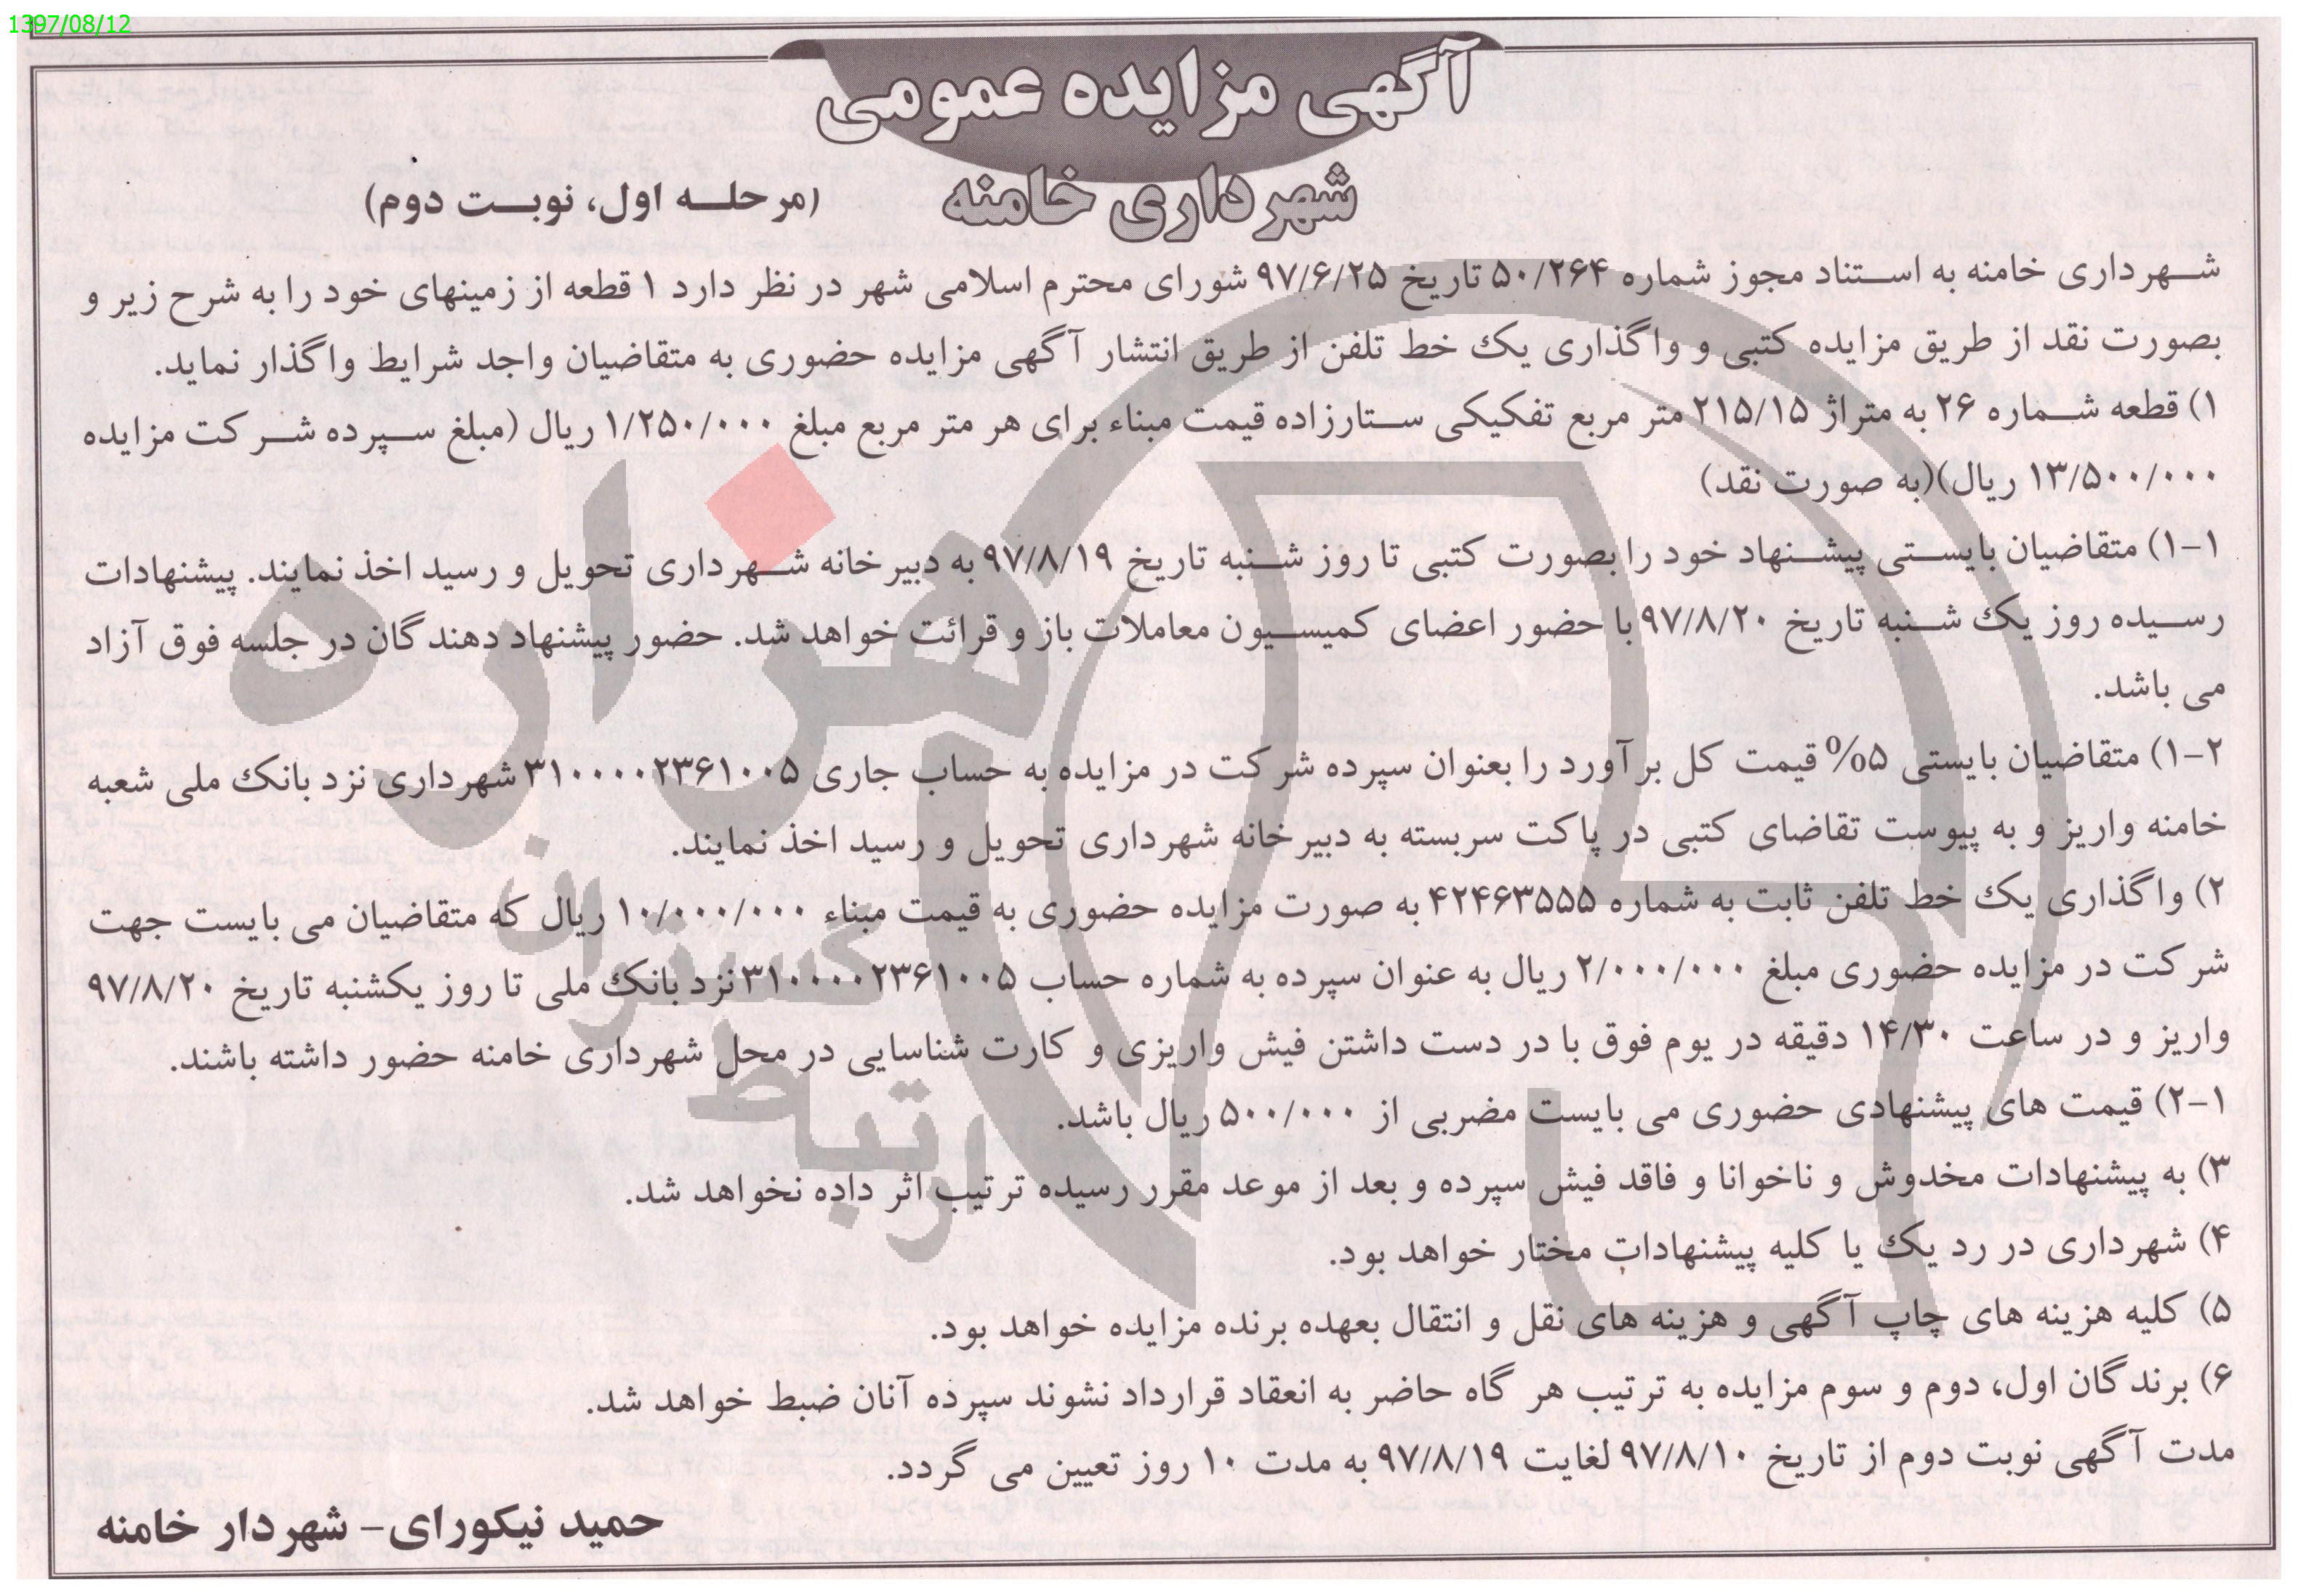 1397/08/12
آگهی مزایده عمومی
شهرداری خامنه
(مرحله اول، نوبت دوم)
شهرداری خامنه به استناد مجوز شماره ۵۰/۲۶۴ تاریخ ۹۷/۶/۲۵ شورای محترم اسلامی شهر در نظر دارد ۱ قطعه از زمینهای خود را به شرح زیر و
بصورت نقد از طریق مزایده کتبی و واگذاری یک خط تلفن از طریق انتشار آگهی مزایده حضوری به متقاضیان واجد شرایط واگذار نماید.
۱) قطعه شماره ۲۶ به متراژ ۲۱۵/۱۵ متر مربع تفکیکی ستارزاده قیمت مبناء برای هر متر مربع مبلغ ۱/۲۵۰/۰۰۰ ریال (مبلغ سپرده شرکت مزایده
۱۳/۵۰۰/۰۰۰ ریال)(به صورت نقد)
۱-۱) متقاضیان بایستی پیشنهاد خود را بصورت کتبی تا روز شنبه تاریخ ۹۷/۸/۱۹ به دبیرخانه شهرداری تحویل و رسید اخذ نمایند. پیشنهادات
رسیده روز یک شنبه تاریخ ۹۷/۸/۲۰ با حضور اعضای کمیسیون معاملات باز و قرائت خواهد شد. حضور پیشنهاد دهندگان در جلسه فوق آزاد
می باشد.
۱-۲) متقاضیان بایستی ۵% قیمت کل برآورد را بعنوان سپرده شرکت در مزایده به حساب جاری ۳۱۰۰۰۰۲۳۶۱۰۰۵ شهرداری نزد بانک ملی شعبه
خامنه واریز و به پیوست تقاضای کتبی در پاکت سربسته به دبیرخانه شهرداری تحویل و رسید اخذ نمایند.
۲) واگذاری یک خط تلفن ثابت به شماره ۴۲۴۶۳۵۵۵ به صورت مزایده حضوری به قیمت مبناء ۱۰/۰۰۰/۰۰۰ ریال که متقاضیان می بایست جهت
شرکت در مزایده حضوری مبلغ ۲/۰۰۰/۰۰۰ ریال به عنوان سپرده به شماره حساب ۳۱۰۰۰۰۲۳۶۱۰۰۵ نزد بانک ملی تا روز یکشنبه تاریخ ۹۷/۸/۲۰
واریز و در ساعت ۱۴/۳۰ دقیقه در یوم فوق با در دست داشتن فیش واریزی و کارت شناسایی در محل شهرداری خامنه حضور داشته باشند.
۲-۱) قیمت های پیشنهادی حضوری می بایست مضربی از ۵۰۰/۰۰۰ ریال باشد.
۳) به پیشنهادات مخدوش و ناخوانا و فاقد فیش سپرده و بعد از موعد مقرر رسیده ترتیب اثر داده نخواهد شد.
۴) شهرداری در رد یک یا کلیه پیشنهادات مختار خواهد بود.
۵) کلیه هزینه های چاپ آگهی و هزینه های نقل و انتقال بعهده برنده مزایده خواهد بود.
۶) برندگان اول، دوم و سوم مزایده به ترتیب هر گاه حاضر به انعقاد قرارداد نشوند سپرده آنان ضبط خواهد شد.
مدت آگهی نوبت دوم از تاریخ ۹۷/۸/۱۰ لغایت ۹۷/۸/۱۹ به مدت ۱۰ روز تعیین می گردد.
حمید نیکورای- شهردار خامنه
هزاره
ارتباط گستران